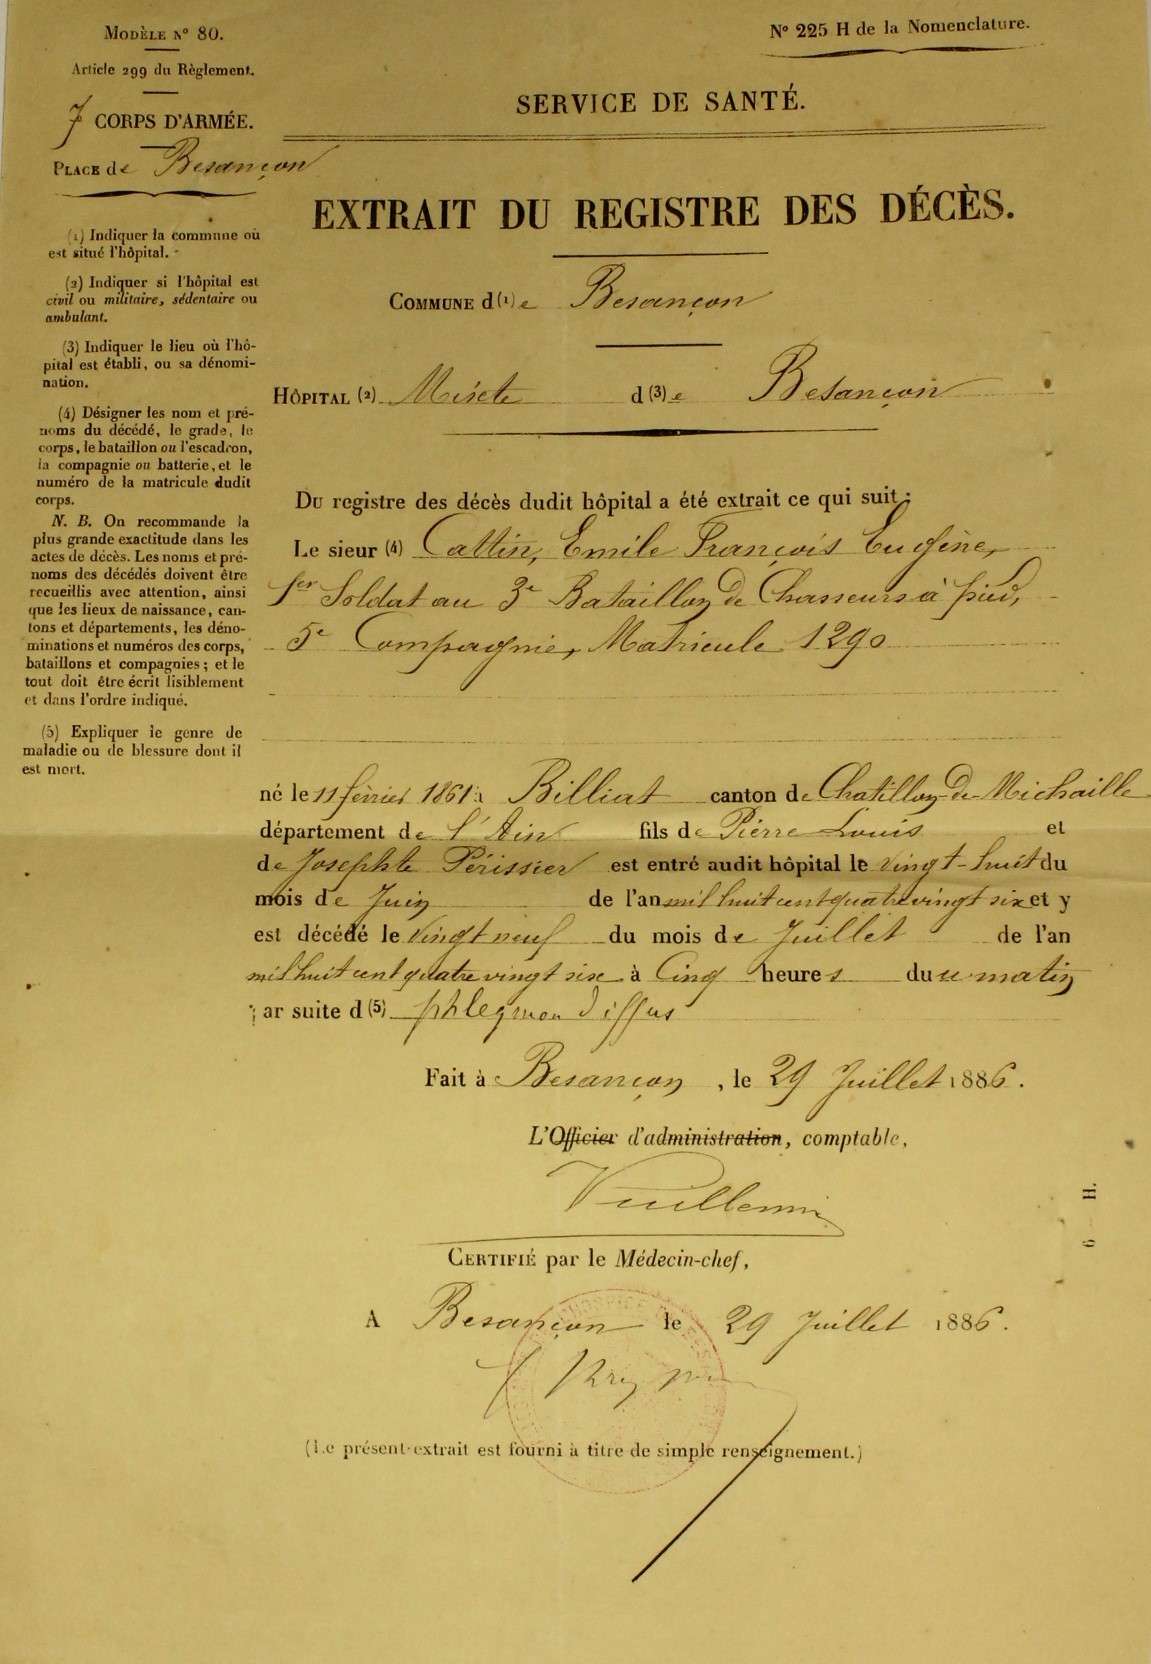 MODÈLE N° 80.
Article 299 du Règlement.
7 CORPS D'ARMÉE.
PLACE de Besançon
(1) Indiquer la commune où
est situé l'hôpital.
(2) Indiquer si l'hôpital est
civil ou militaire, sédentaire ou
ambulant.
(3) Indiquer le lieu où l'hô-
pital est établi, ou sa dénomi-
nation.
(4) Désigner les nom et pré-
noms du décédé, le grade, le
corps, le bataillon ou l'escadron,
la compagnie ou batterie, et le
numéro de la matricule dudit
corps.
N. B. On recommande la
plus grande exactitude dans les
actes de décès. Les noms et pré-
noms des décédés doivent être
recueillis avec attention, ainsi
que les lieux de naissance, can-
tons et départements, les déno-
minations et numéros des corps,
bataillons et compagnies; et le
tout doit être écrit lisiblement
et dans l'ordre indiqué.
(5) Expliquer le genre de
maladie ou de blessure dont il
est mort.
N° 225 H de la Nomenclature.
SERVICE DE SANTÉ.
EXTRAIT DU REGISTRE DES DÉCÈS.
COMMUNE d(1)e Besançon
HÔPITAL (2) Mixte d(3)e Besançon
Du registre des décès dudit hôpital a été extrait ce qui suit:
Le sieur (4) Cattin, Emile François Eugène,
1er Soldat au 3e Bataillon de Chasseurs à pied,
5e Compagnie, Matricule 1290
né le 11 février 1861 à Billiat canton de Chatillon-de-Michaille
département de l'Ain fils de Pierre Louis et
de Josephte Périssier est entré audit hôpital le vingt-huit du
mois de Juin de l'an mil huit cent quatre vingt six et y
est décédé le vingt neuf du mois de Juillet de l'an
mil huit cent quatre vingt six à Cinq heures du matin
par suite d(5) phlegmon diffus
Fait à Besançon, le 29 Juillet 1886.
L'Officier d'administration, comptable,
Vuillemin
CERTIFIÉ par le Médecin-chef,
A Besançon le 29 Juillet 1886.
(Le présent extrait est fourni à titre de simple renseignement.)
6 — H.